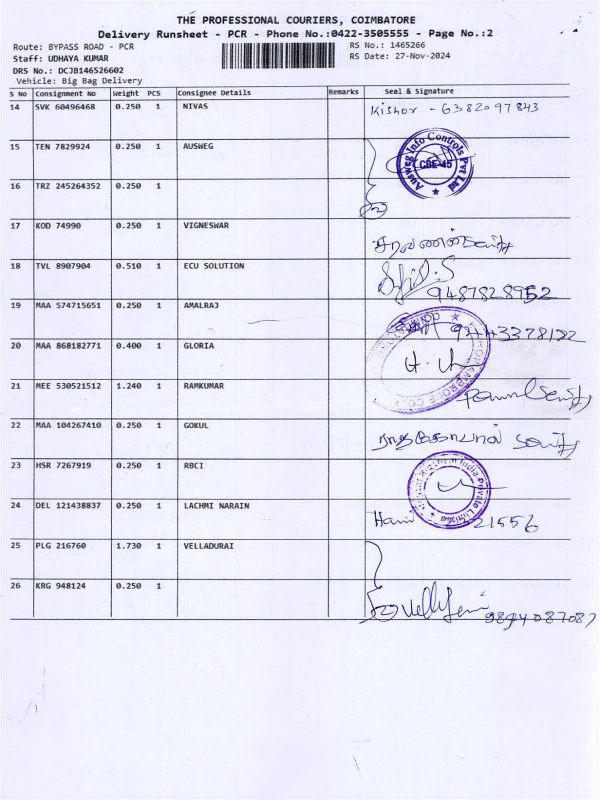 THE PROFESSIONAL COURIERS, COIMBATORE
Delivery Runsheet - PCR - Phone No.:0422-3505555 - Page No.:2
Route: BYPASS ROAD - PCR
RS No.: 1465266
Staff: UDHAYA KUMAR
RS Date: 27-Nov-2024
DRS No.: DCJB146526602
Vehicle: Big Bag Delivery
S No Consignment No Weight PCS Consignee Details Remarks Seal & Signature
14 SVK 60496468 0.250 1 NIVAS Kishor - 6382097843
15 TEN 7829924 0.250 1 AUSWEG
Ausweg Info Controls Pvt Ltd
CBE-45
16 TRZ 245264352 0.250 1
2
17 KOD 74990 0.250 1 VIGNESWAR
18 TVL 8907904 0.510 1 ECU SOLUTION
9487828952
19 MAA 574715651 0.250 1 AMALRAJ
20 MAA 868182771 0.400 1 GLORIA
21 MEE 530521512 1.240 1 RAMKUMAR
22 MAA 104267410 0.250 1 GOKUL
23 HSR 7267919 0.250 1 RBCI
India Private Limited
24 DEL 121438837 0.250 1 LACHMI NARAIN
21556
25 PLG 216760 1.730 1 VELLADURAI
26 KRG 948124 0.250 1
9894087087